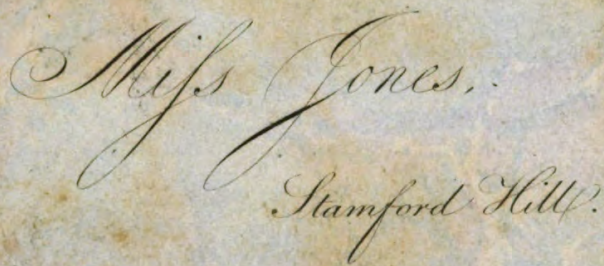 Miſs Jones.
Stamford Hill.